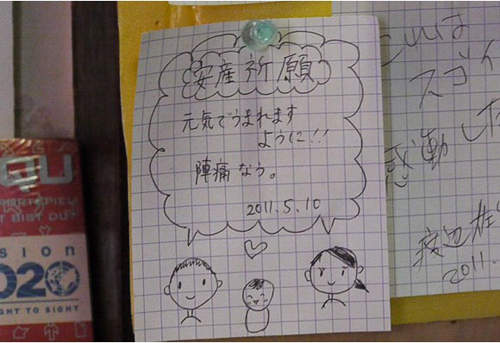 安産祈願
元気でうまれます
ように!!
陣痛なう。
2011.5.10
スゴイ
感動した
渡辺
2011.
ision
2020
GHT TO SIGHT